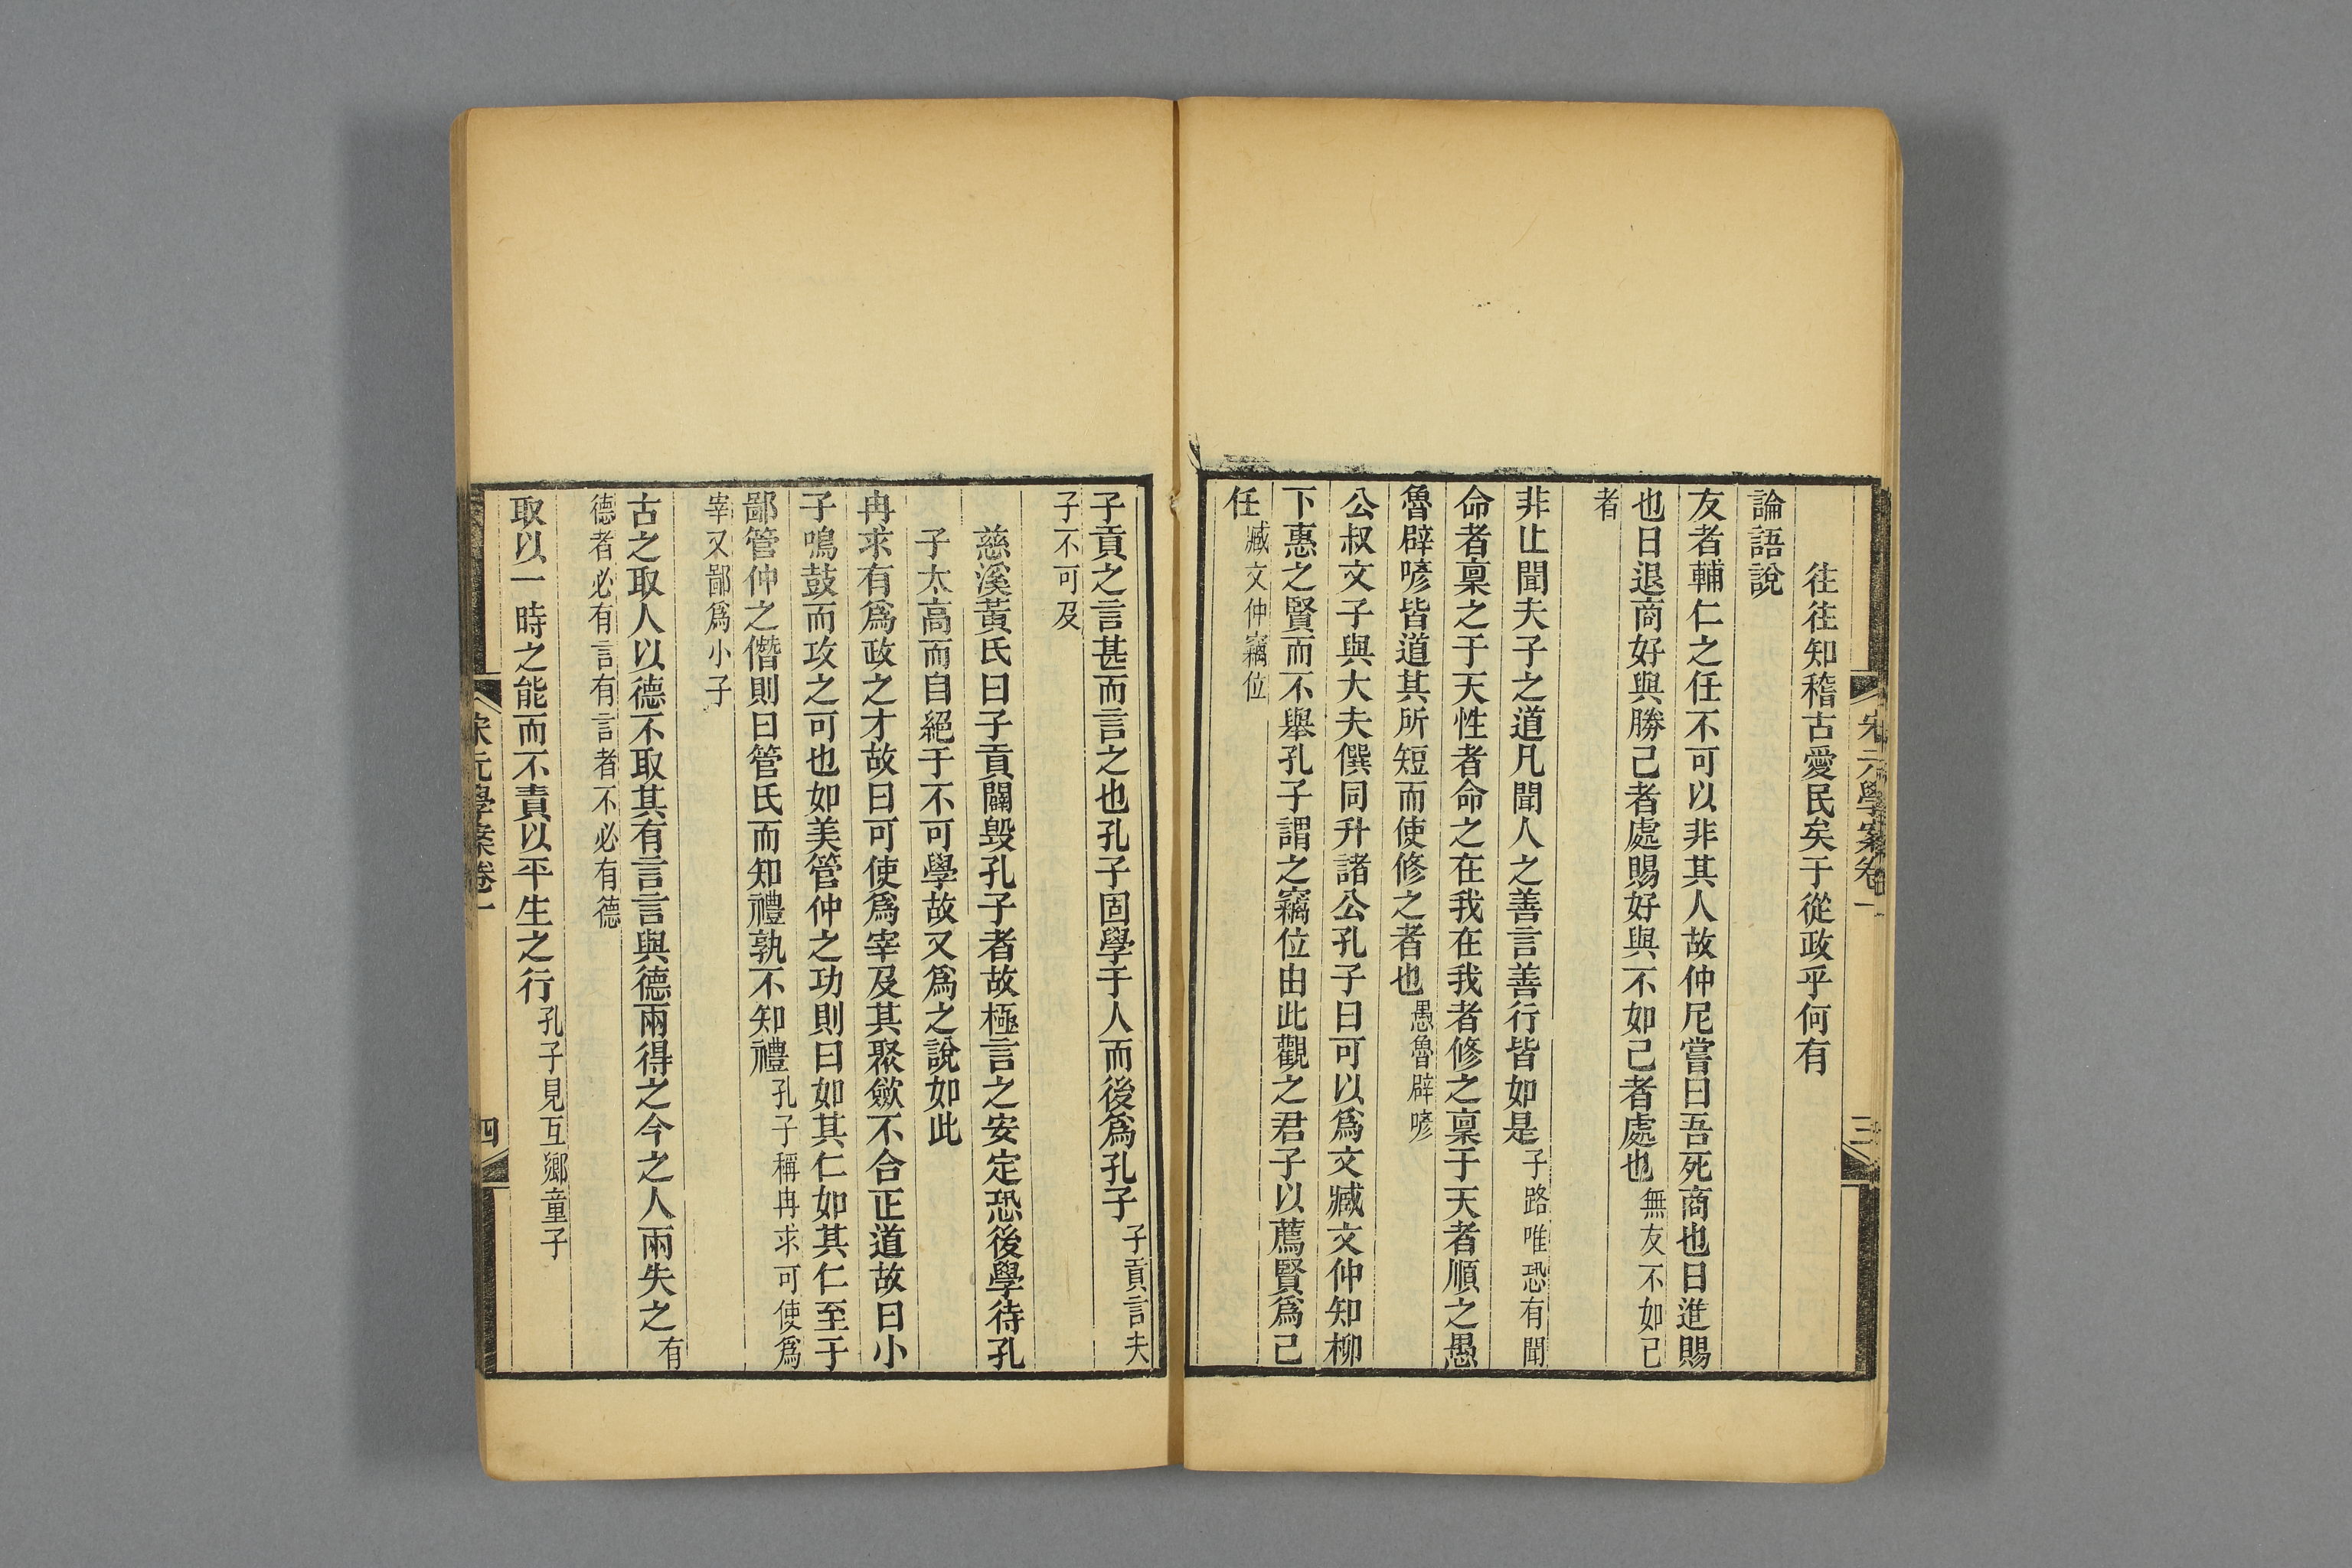 宋元學案卷一
三
往往知稽古愛民矣于從政乎何有
論語說
友者輔仁之任不可以非其人故仲尼嘗曰吾死商也日進賜
也日退商好與勝己者處賜好與不如己者處也無友不如己
者
非止聞夫子之道凡聞人之善言善行皆如是子路唯恐有聞
命者稟之于天性者命之在我在我者修之稟于天者順之愚
魯辟喭皆道其所短而使修之者也愚魯辟喭
公叔文子與大夫僎同升諸公孔子曰可以爲文臧文仲知柳
下惠之賢而不舉孔子謂之竊位由此觀之君子以薦賢爲己
任臧文仲竊位
子貢之言甚而言之也孔子固學于人而後爲孔子子貢言夫
子不可及
慈溪黃氏曰子貢闢毀孔子者故極言之安定恐後學待孔
子太高而自絕于不可學故又爲之說如此
冉求有爲政之才故曰可使爲宰及其聚斂不合正道故曰小
子鳴鼓而攻之可也如美管仲之功則曰如其仁如其仁至于
鄙管仲之僭則曰管氏而知禮孰不知禮孔子稱冉求可使爲
宰又鄙爲小子
古之取人以德不取其有言言與德兩得之今之人兩失之有
德者必有言有言者不必有德
取以一時之能而不責以平生之行孔子見互鄉童子
宋元學案卷一
四